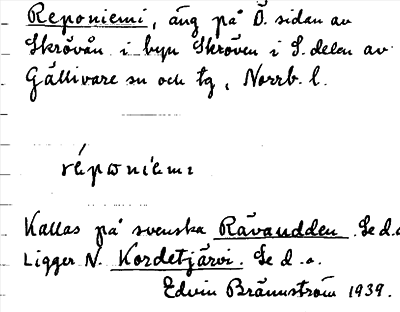 Reponiemi, äng på Ö. sidan av
Skrövån i byn Skröven i S. delen av
Gällivare sn och tg, Norrb. l.
Kallas på svenska Rävaudden. Se d.o
Ligger N. Kordetjärvi. Se d.o.
Edvin Brännström 1939.